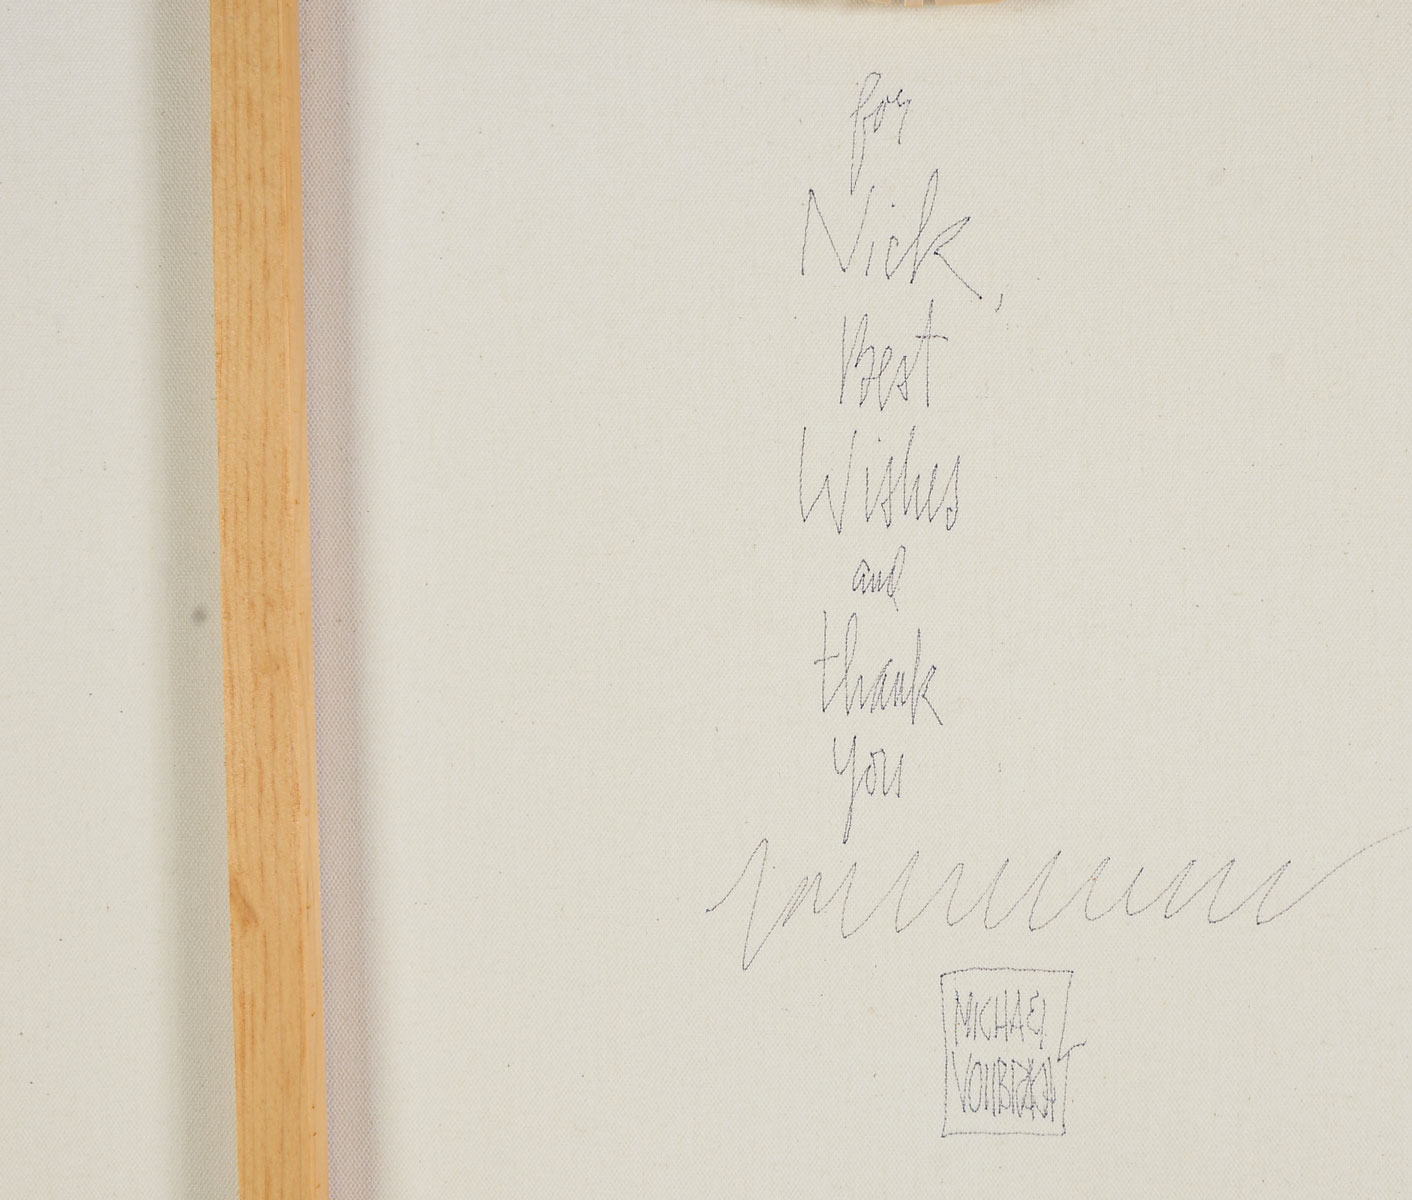 for
Nick,
Best
Wishes
and
thank
you
MICHAEL
VOLLBRACHT